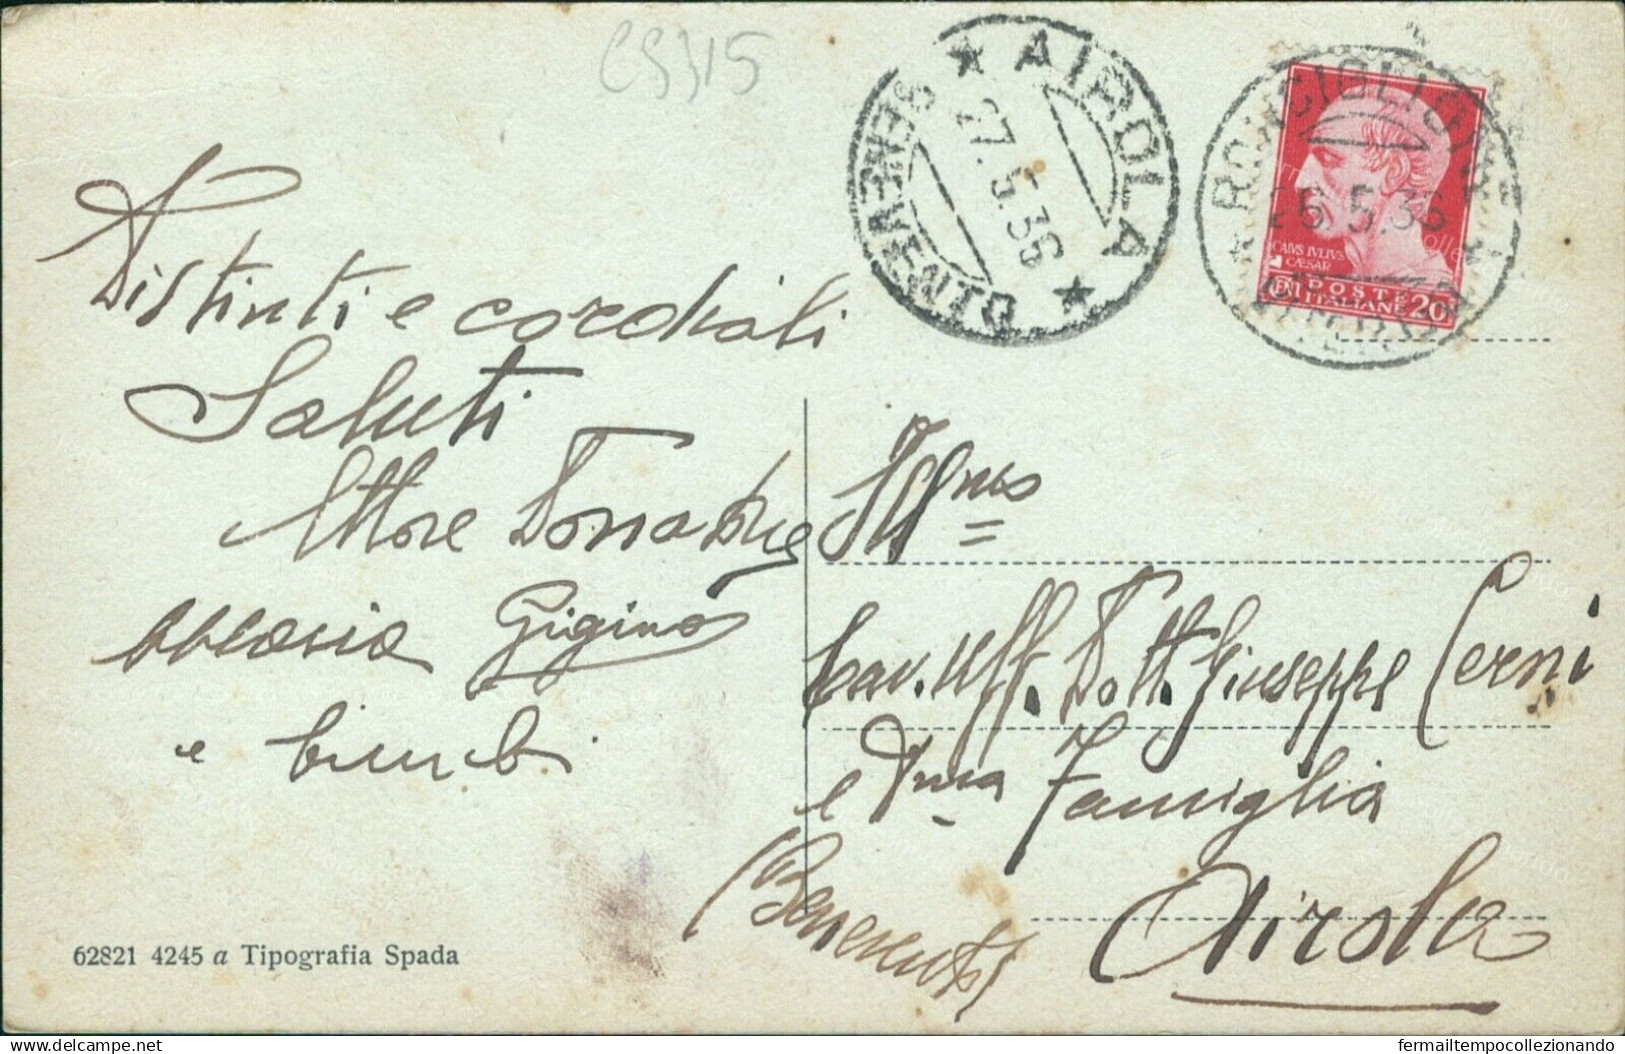 CS315
AIROLA
27.5.36
BENEVENTO
RONCIGLIONE
26.5.36
VITERBO
CAIVS IVLIVS
CAESAR
POSTE
CENT. ITALIANE 20
Distinti e cordiali
Saluti
Ettore
Gigino
e bimbi
Cav. Uff. Dott. Giuseppe Cerni
e Famiglia
Airola
(Benevento)
62821 4245 a Tipografia Spada
fermailtempocollezionando